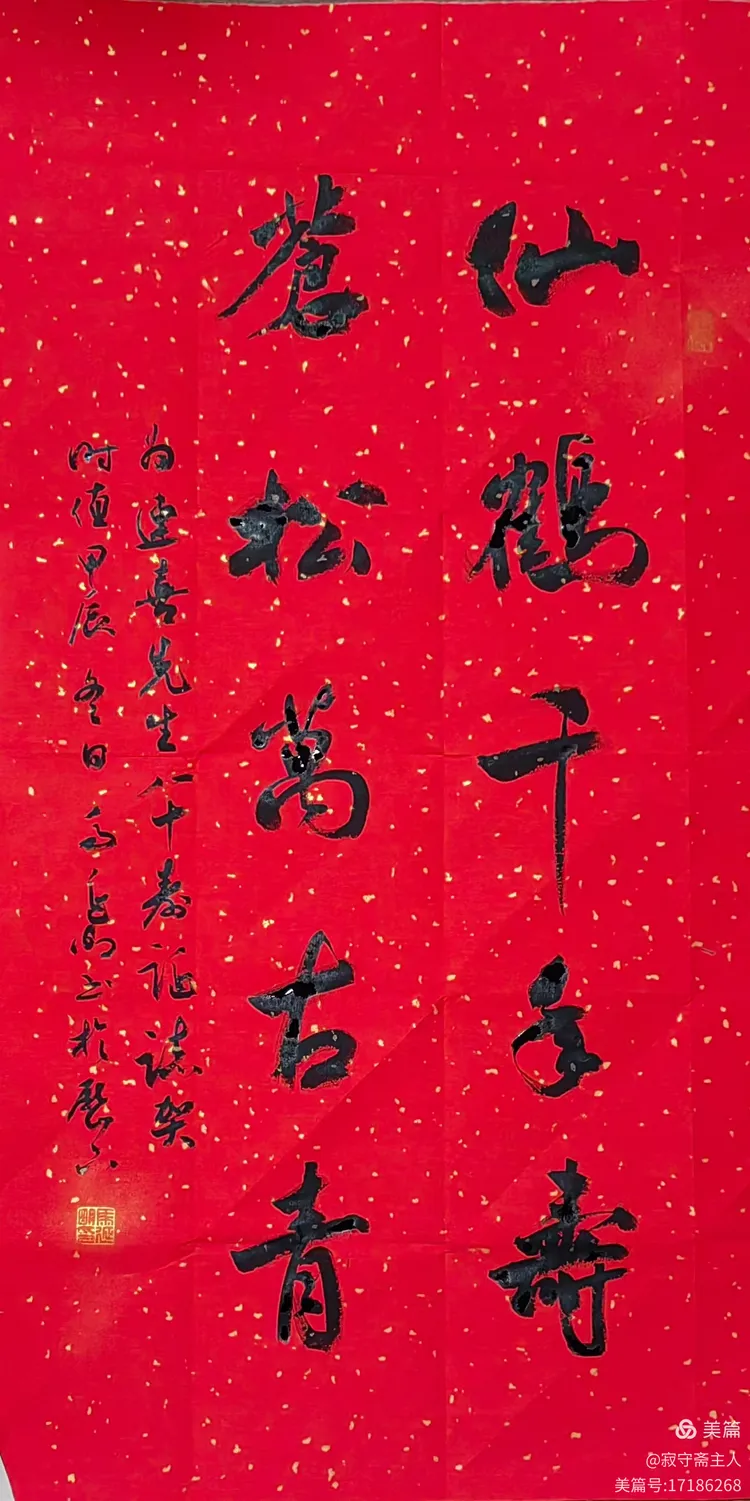 仙鹤千年壽
蒼松萬古青
为连喜先生八十寿誕誌贺
时值甲辰冬日 书於歷下
美篇
@寂守斋主人
美篇号:17186268